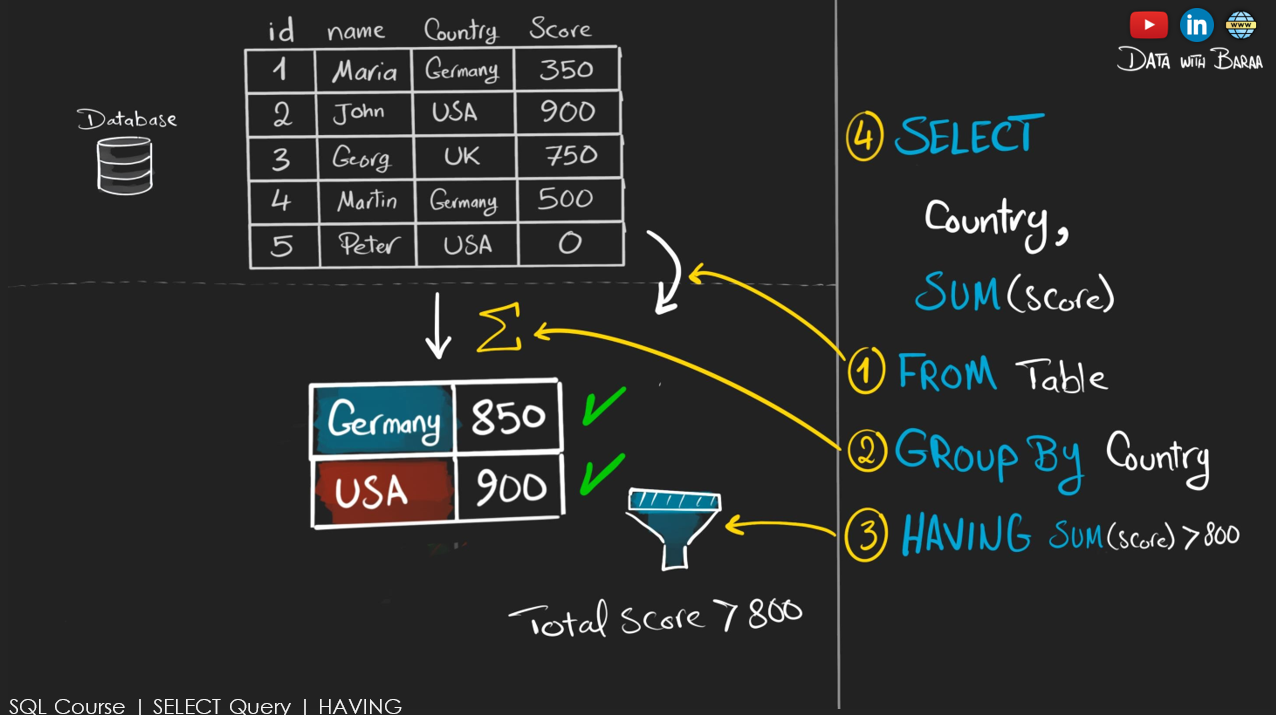 id name Country Score
1 Maria Germany 350
2 John USA 900
3 Georg UK 750
4 Martin Germany 500
5 Peter USA 0
Database
Σ
Germany 850
USA 900
Total Score > 800
WWW
in
DATA WITH BARAA
4 SELECT
Country,
SUM(score)
1 FROM Table
2 GROUP BY Country
3 HAVING SUM(score) > 800
SQL Course | SELECT Query | HAVING